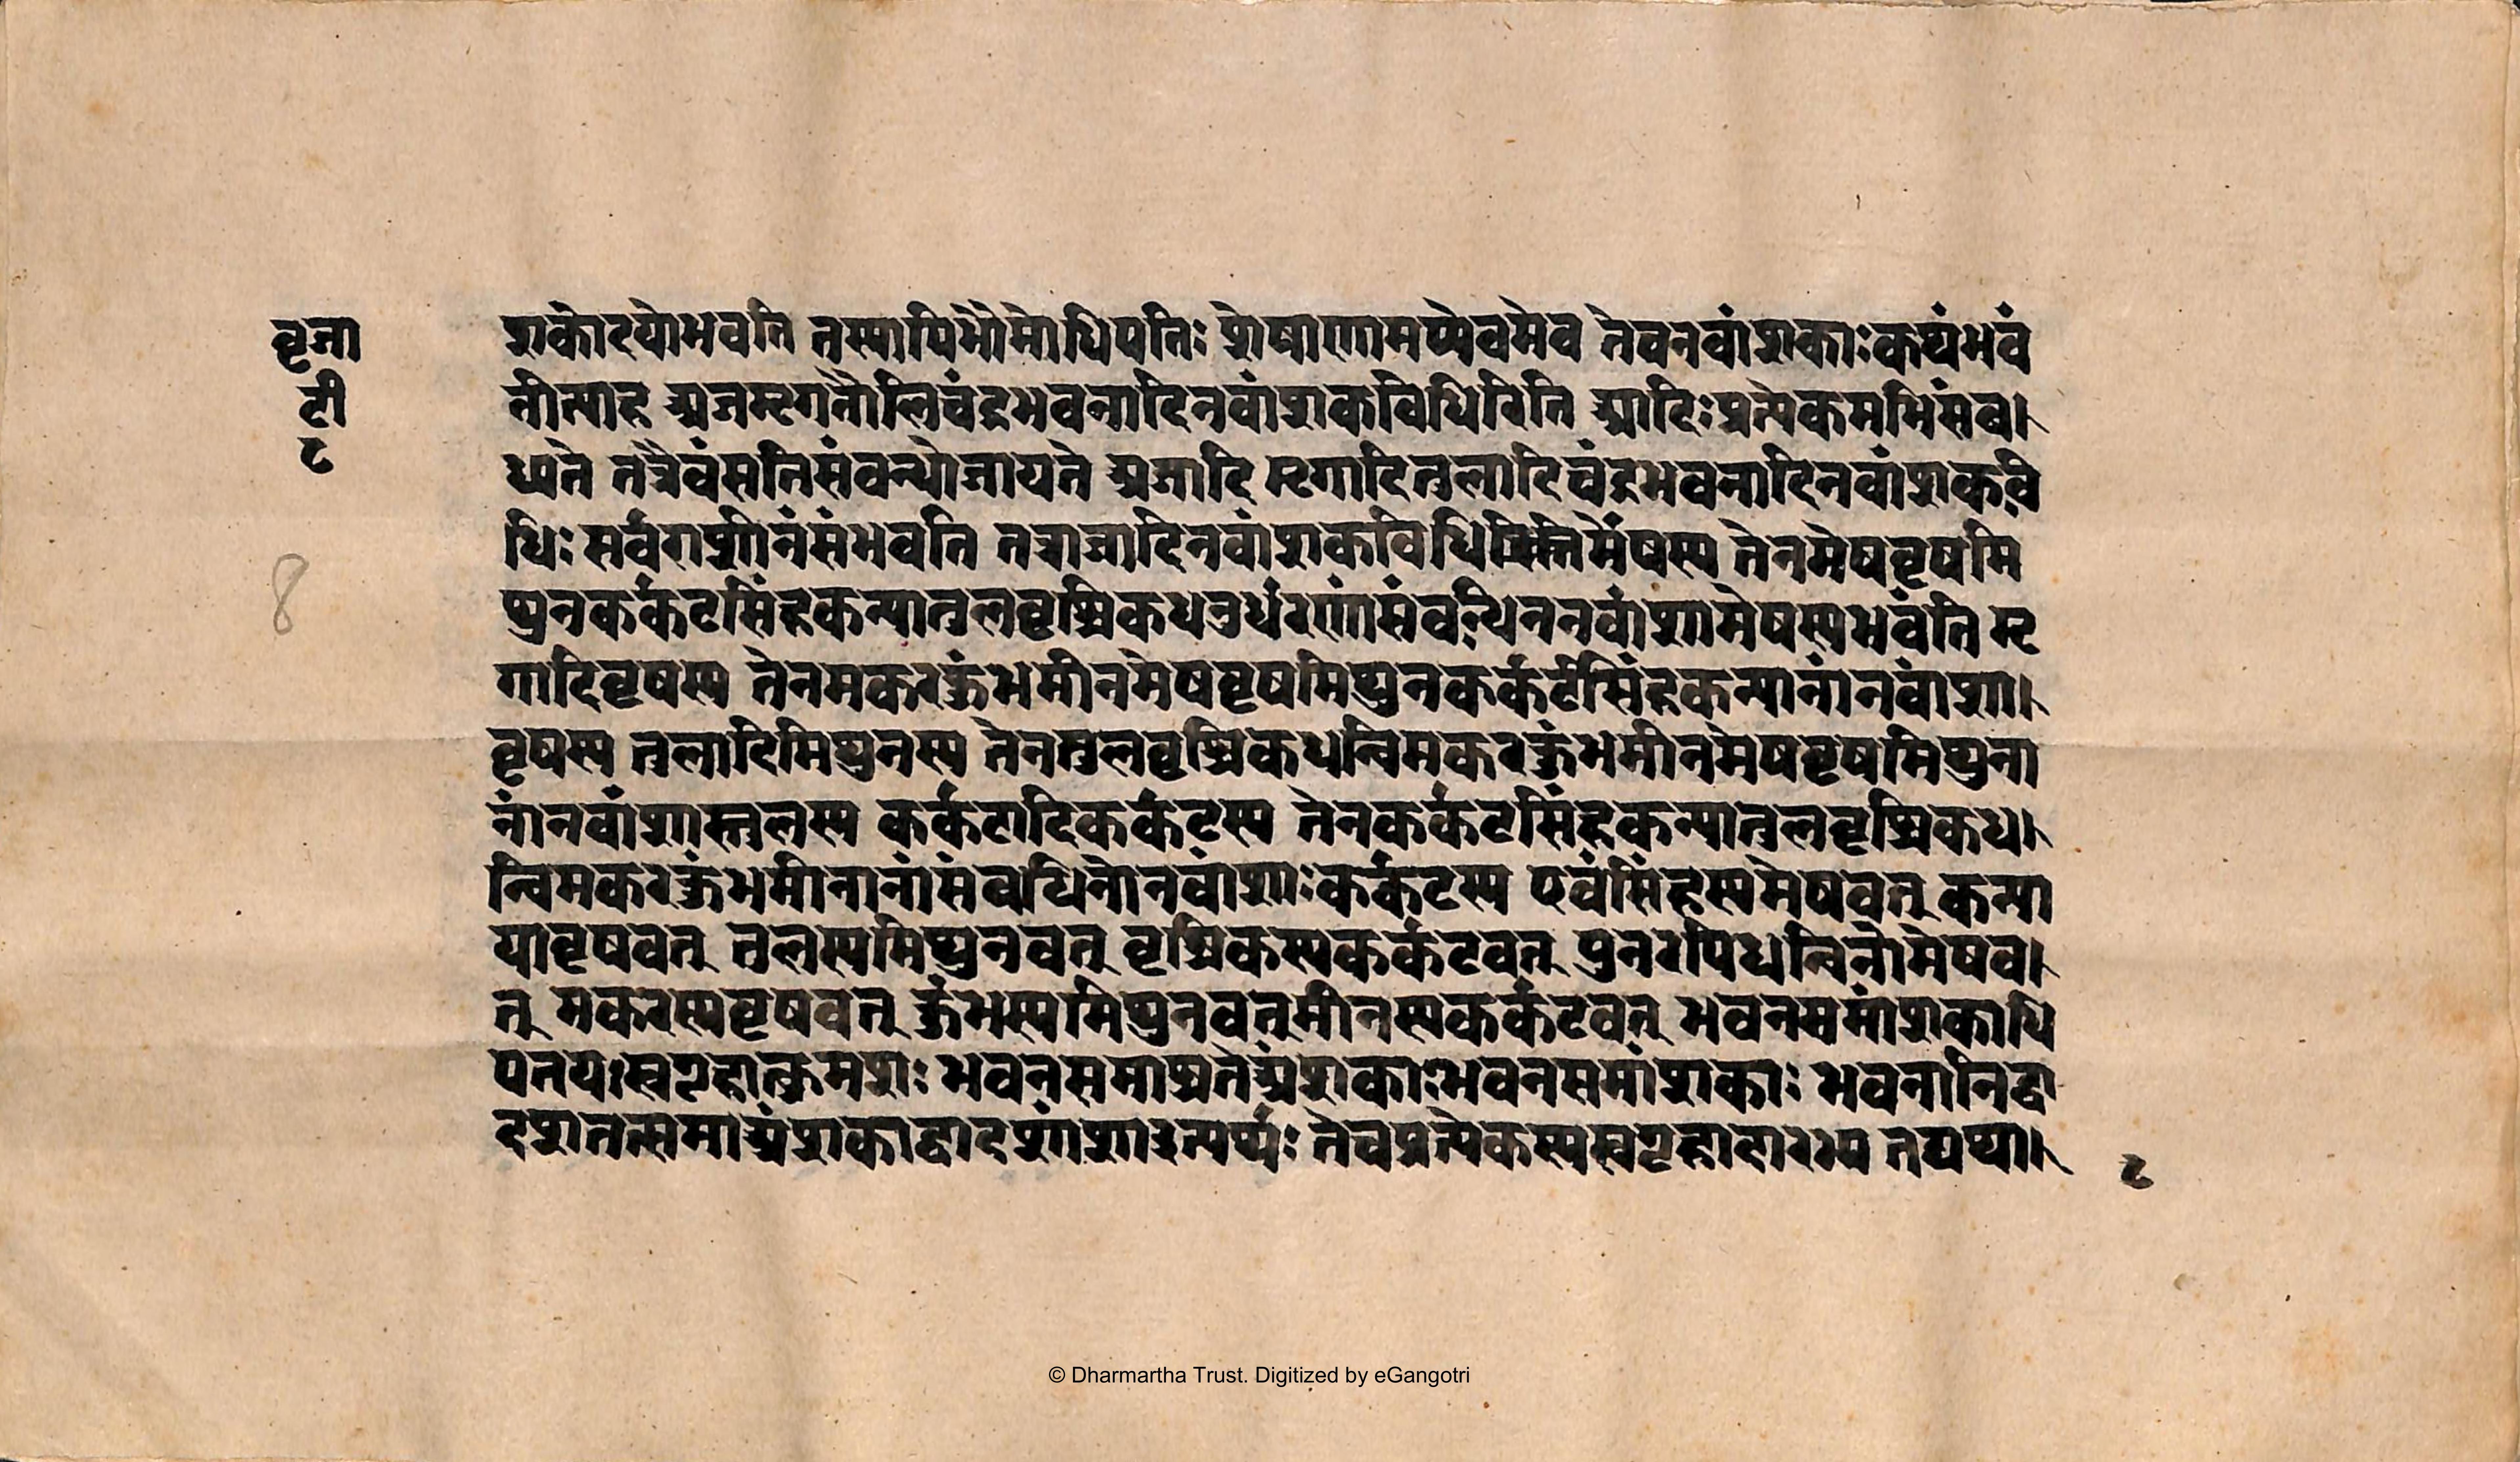 वृजा
टी
८
शकोदयोभवति तस्यापिभौमोधिपतिः शेषाणामप्येवमेव तेवनवांशकाःकथंभवं
तीत्याह अजमृगतौलिचंद्रभवनादिनवांशकविधिरिति आदिःप्रत्येकमभिसंब।
ध्यते तत्रैवंसतिसंवन्धोजायते अजादि मृगादितुलादिचंद्रभवनादिनवांशकवि
धिः सर्वराशीनंसंभवति तत्राजादिनवांशकविधि मेषस्य तेनमेषवृषमि
थुनकर्कटसिंहकन्यातुलवृश्चिकधनुर्धराणांसंवन्धिननवांशामेषस्यभवंति मृ
गादिवृषस्य तेनमकरकुंभमीनमेषवृषमिथुनकर्कटसिंहकन्यानांनवांशा।
वृषस्य तुलादिमिथुनस्य तेनतुलवृश्चिकधन्विमकरकुंभमीनमेषवृषमिथुना
नांनवांशास्तुलस्य कर्कटादिकर्कटस्य तेनकर्कटसिंहकन्यातुलवृश्चिकध।
न्विमकरकुंभमीनानांसंबधिनोनवांशाःकर्कटस्य एवंसिंहस्यमेषवत् कन्या
यावृषवत् तुलस्यमिथुनवत् वृश्चिकस्यकर्कटवत् पुनरपिधन्विनोमेषव।
त् मकरस्यवृषवत् कुंभस्यमिथुनवत्मीनस्यकर्कटवत् भवनसमांशकाधि
पतयःस्वगृहात्क्रमशः भवनसमाश्चतेअंशकाःभवनसमांशकाः भवनानिद्वा
दशतत्समाअंशकाद्वादशांशाइत्यर्थः तेचप्रत्येकस्यस्वगृहादारभ्य तद्यथा।
८
8
© Dharmartha Trust. Digitized by eGangotri